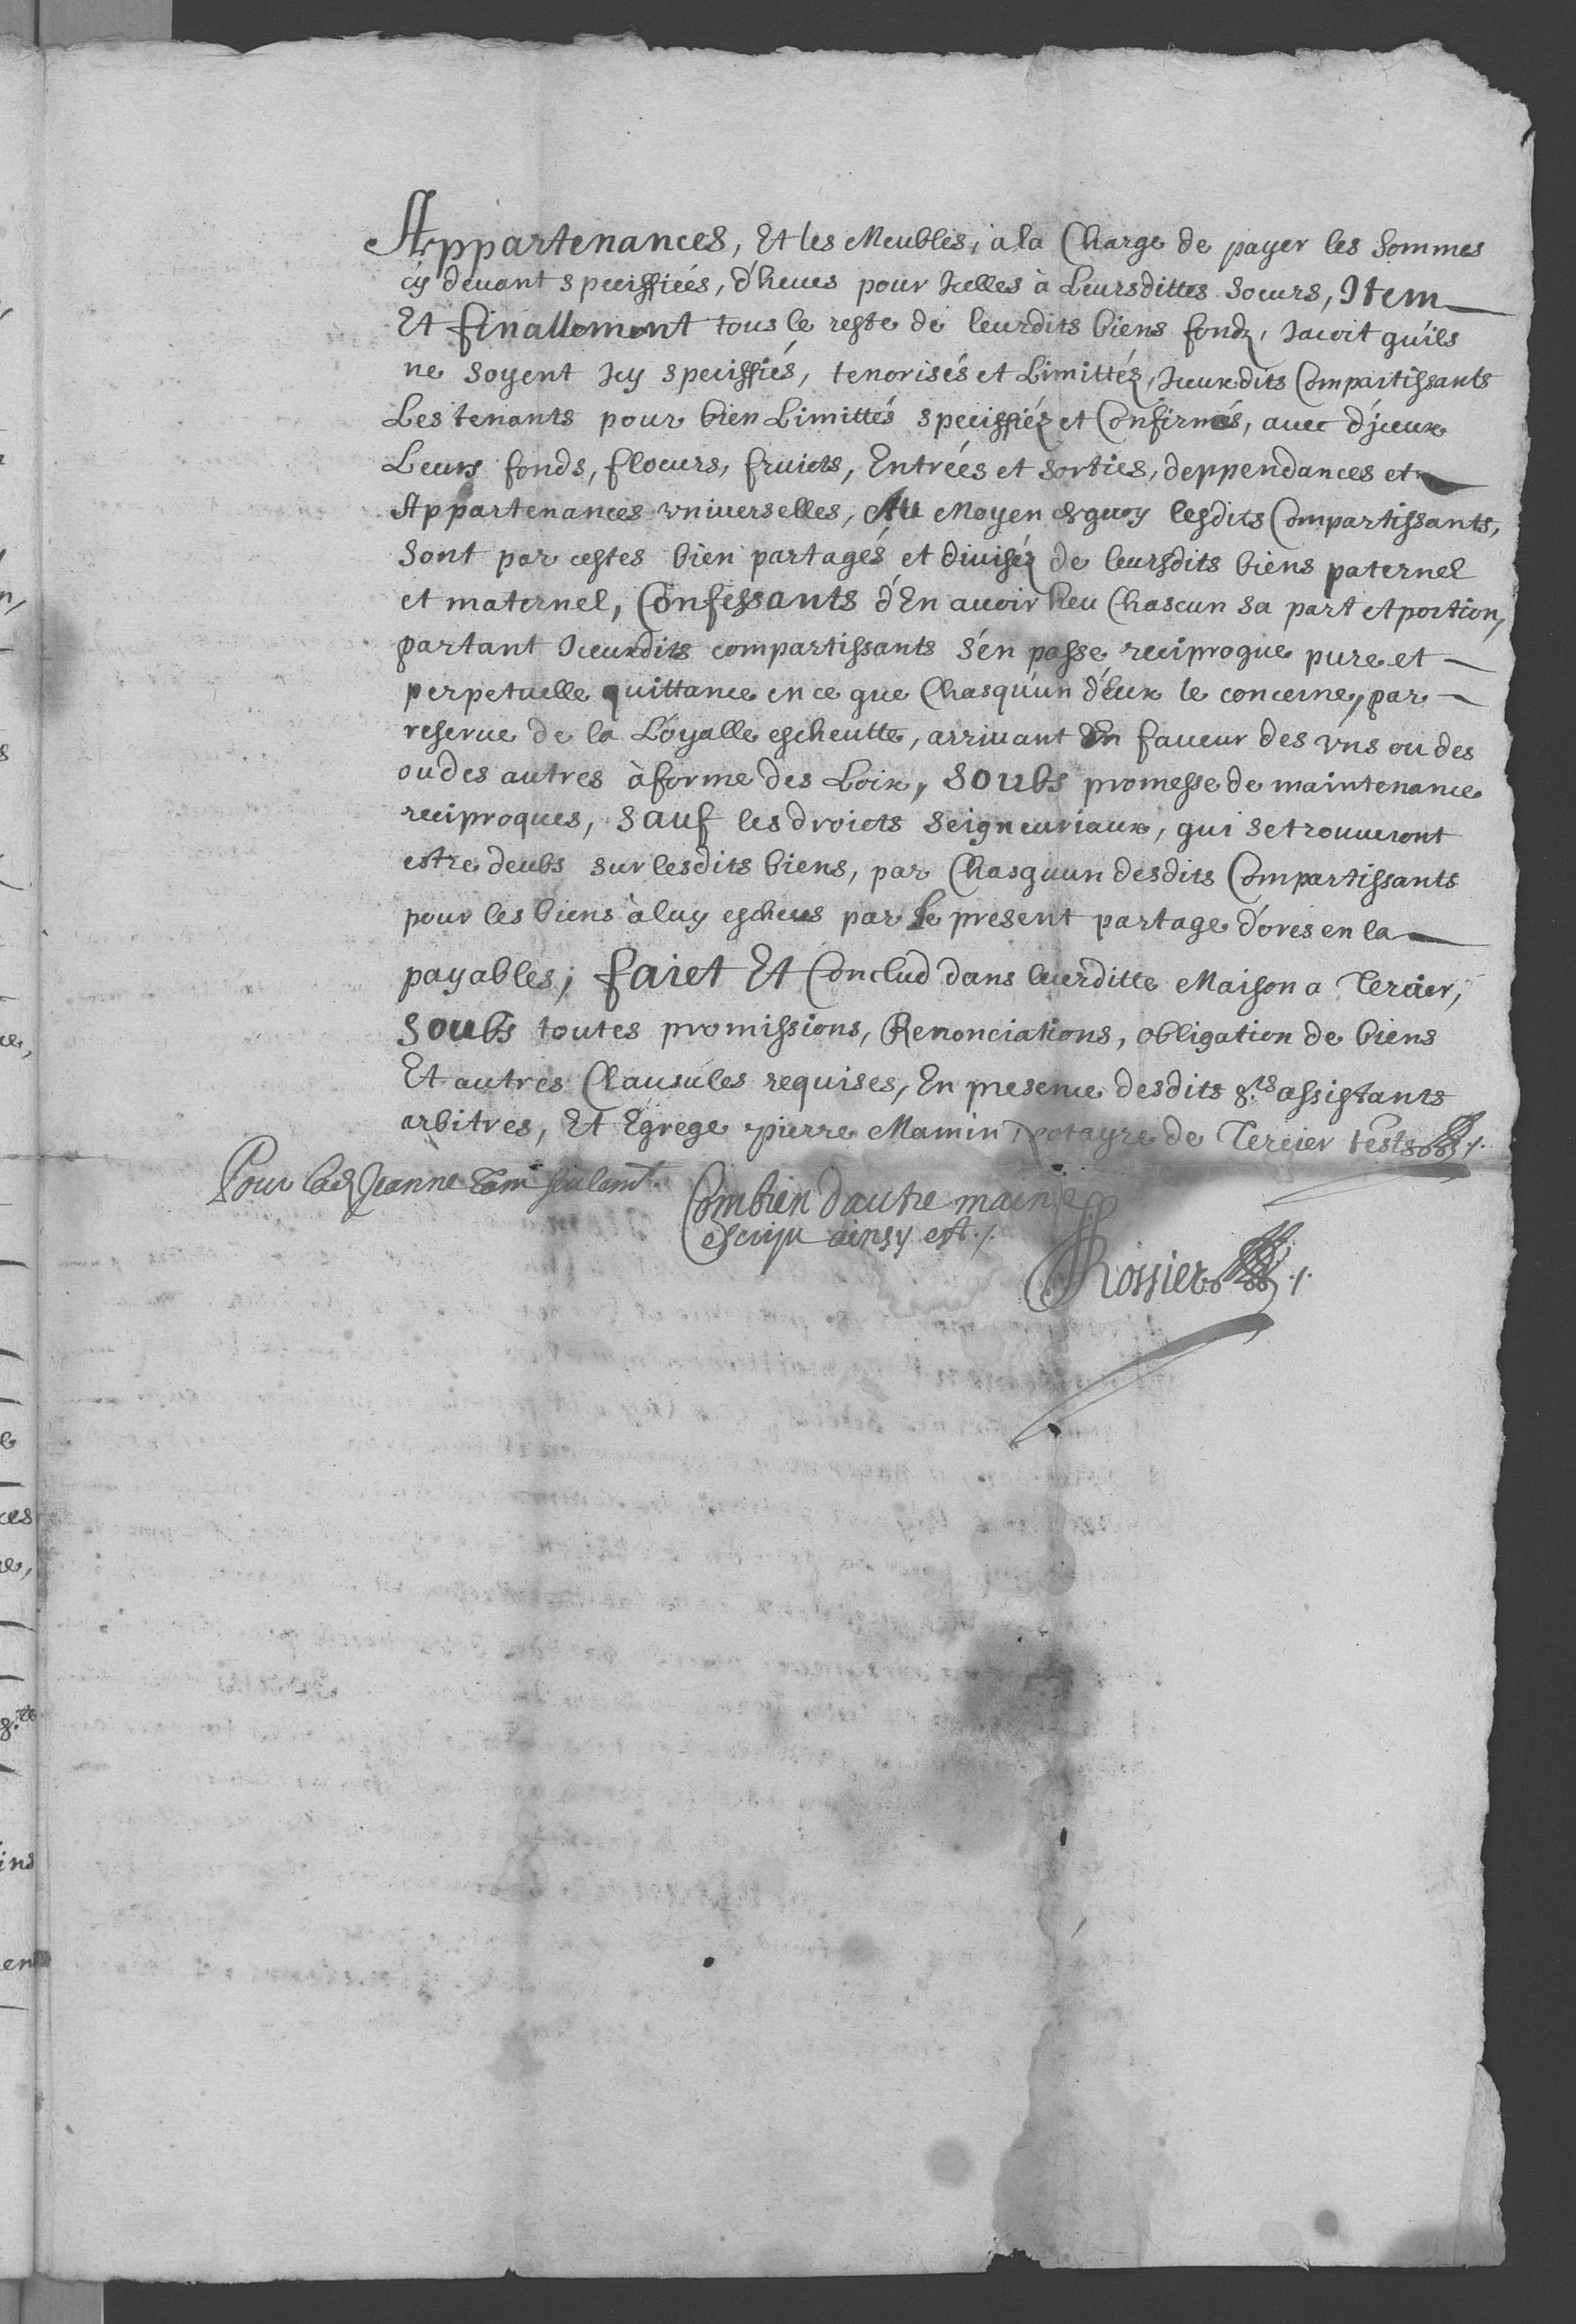 Appartenances, Et les Meubles, a la Charge de payer les Sommes
cy devant speciffiées, d'heues pour Jcelles à Leursdittes Soeurs, Item
Et finallement tous le reste de leurdits biens fondz, Jacoit qu'ils
ne soyent Jcy speciffiés, tenorisés et Limittéz, Jceuxdits Compartissants
Les tenants pour bien Limittés speciffiéz et Confirmés, avec d'jceux
Leurs fonds, floeurs, fruicts, Entrées et sorties, deppendances et
Appartenances vniuerselles, Au Moyen de quoy lesdits Compartissants,
Sont par cestes bien partagés et diviséz de leursdits biens paternel
et maternel, Confessants d'En auoir heu Chascun sa part et portion,
partant Jceuxdits compartissants s'en passe reciproque pure et
perpetuelle quittance en ce que Chasqu'un d'Eux le concerne, par
reserue de la Loyalle escheutte, arriuant En faueur des vns ou des
ou des autres à forme des Loix, Soubs promesse de maintenance
reciproques, Sauf les droicts Seigneuriaux, qui se trouueront
estre deubs sur lesdits biens, par Chasquun desdits Compartissants
pour les biens à luy escheus par Le present partage d'ores en la
payables; faict Et Conclud dans leurditte Maison a Tercier,
Soubs toutes promissions, Renonciations, obligation de biens
Et autres Clausules requises, En presence desdits Srs assistants
arbitres, Et Egrege pierre Mamin, Notayre de Tercier tests
Pour lad Jeanne seulemt.
Combien d'autre main
escript ainsy est
Rossier